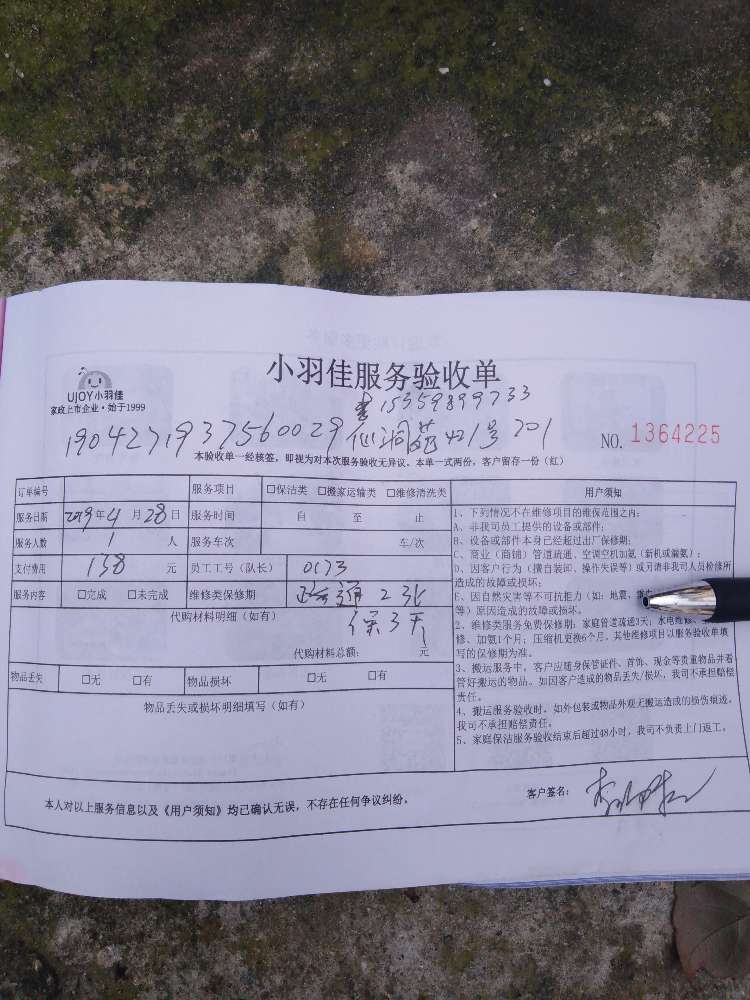 小羽佳服务验收单
UJOY小羽佳
家政上市企业·始于1999
15359899733
1904271937560029 仙洞苑421号701
NO. 1364225
本验收单一经核签，即视为对本次服务验收无异议。本单一式两份，客户留存一份（红）
订单编号 服务项目 □保洁类 □搬家运输类 □维修清洗类
服务日期 2019年4月28日 服务时间 自 至 止
服务人数 1 人 服务车次 车/次
支付费用 138 元 员工工号（队长） 0173
服务内容 □完成 □未完成 维修类保修期 通2次
代购材料明细（如有） 保3天
代购材料总额： 元
物品丢失 □无 □有 物品损坏 □无 □有
物品丢失或损坏明细填写（如有）
用户须知
1、下列情况不在维修项目的维保范围之内：
A、非我司员工提供的设备或部件；
B、设备或部件本身已经超过出厂保修期；
C、商业（商铺）管道疏通、空调空机加氟（新机或漏氟）；
D、因客户行为（擅自装卸、操作失误等）或另请非我司人员检修所
造成的故障或损坏；
E、因自然灾害等不可抗拒力（如：地震、
等）原因造成的故障或损坏。
2、维修类服务免费保修期：家庭管道疏通3天；水电维修、
修、加氟1个月；压缩机更换6个月，其他维修项目以服务验收单填
写的保修期为准。
3、搬运服务中，客户应随身保管证件、首饰、现金等贵重物品并看
管好搬运的物品。如因客户造成的物品丢失/损坏，我司不承担赔偿
责任。
4、搬运服务验收时，如外包装或物品外观无搬运造成的损伤痕迹，
我司不承担赔偿责任。
5、家庭保洁服务验收结束后超过48小时，我司不负责上门返工。
本人对以上服务信息以及《用户须知》均已确认无误，不存在任何争议纠纷。
客户签名：